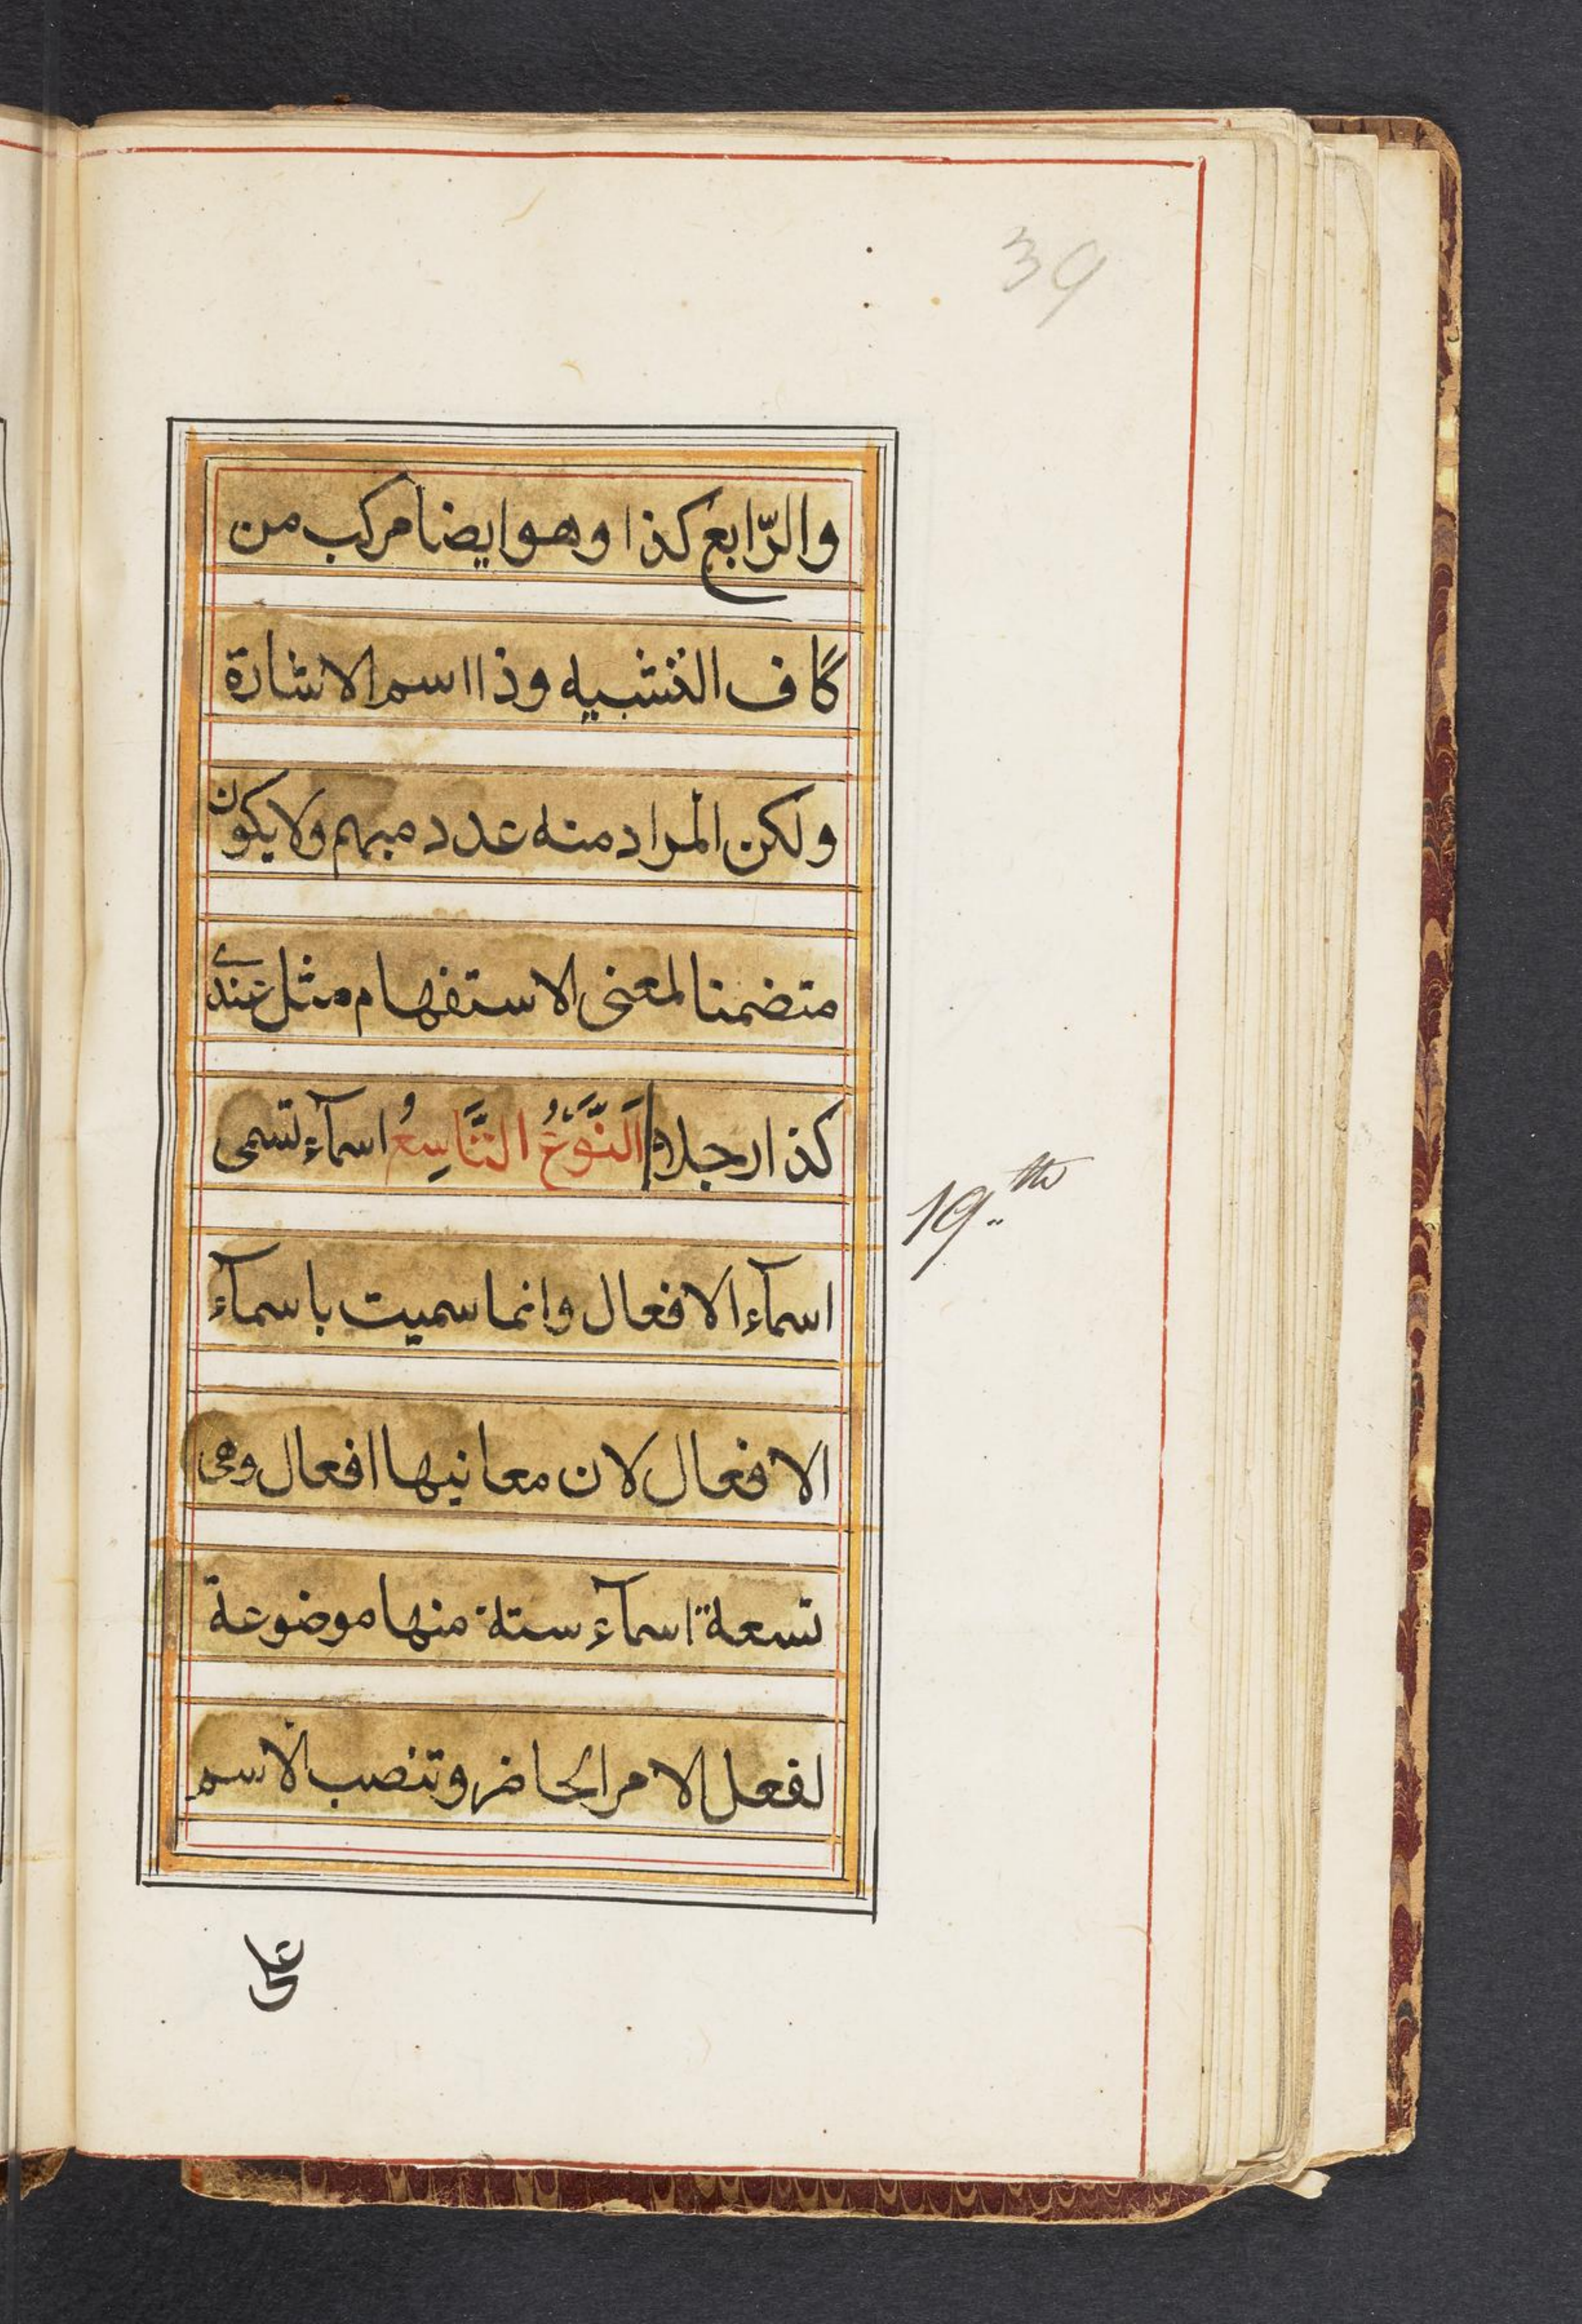 39
والرّابع كذا وهو ايضا مركب من
كاف التشبيه وذا اسم الاشارة
ولكن المراد منه عدد مبهم ولا يكون
متضمنا لمعنى الاستفهام مثل عندى
كذا رجلا اَلنَّوْعُ التَّاسِعُ اسمآء تسمى
19th
اسمآء الافعال وانما سميت باسمآء
الافعال لان معانيها افعال وهى
تسعة اسمآء ستة منها موضوعة
لفعل الامر الحاضر وتنصب الاسم
على